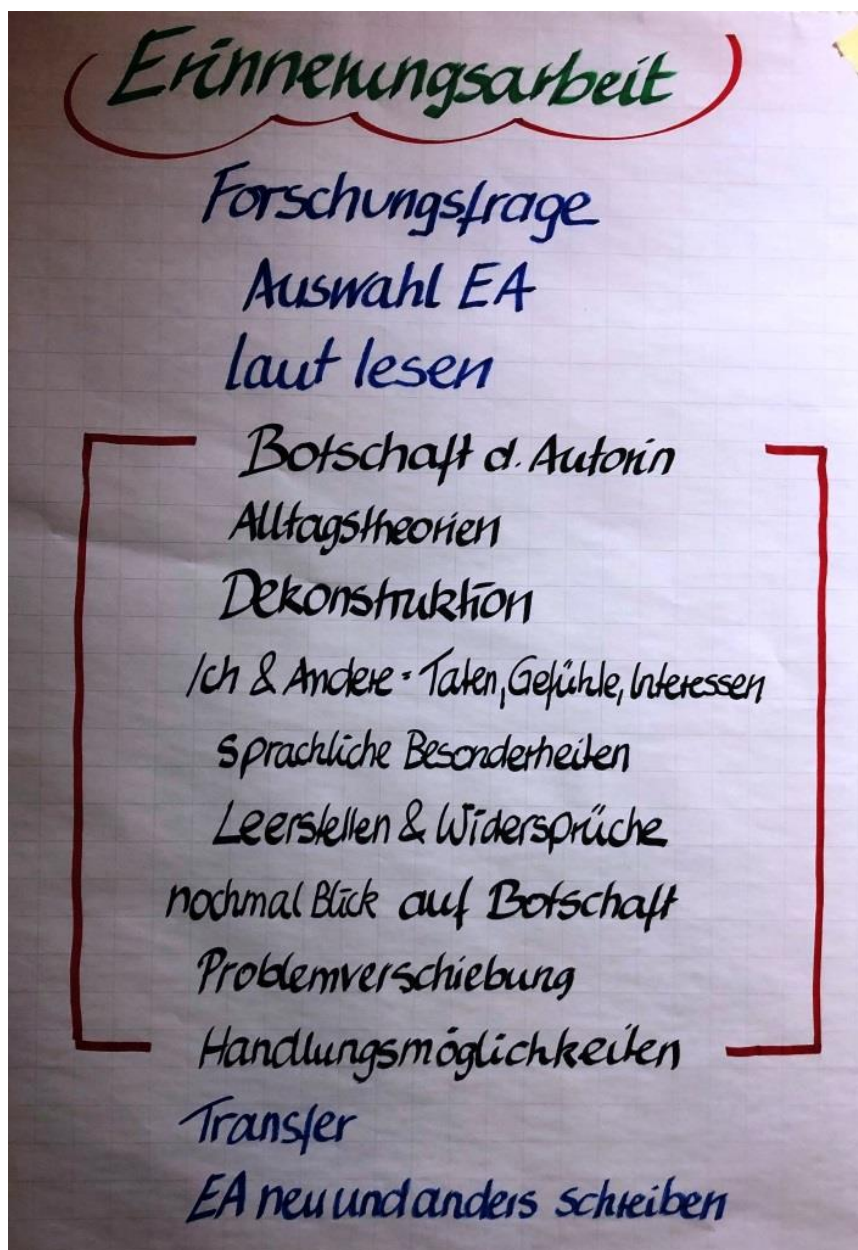 Erinnerungsarbeit
Forschungsfrage
Auswahl EA
laut lesen
Botschaft d. Autorin
Alltagstheorien
Dekonstruktion
Ich & Andere - Taten, Gefühle, Interessen
sprachliche Besonderheiten
Leerstellen & Widersprüche
nochmal Blick auf Botschaft
Problemverschiebung
Handlungsmöglichkeiten
Transfer
EA neu und anders schreiben